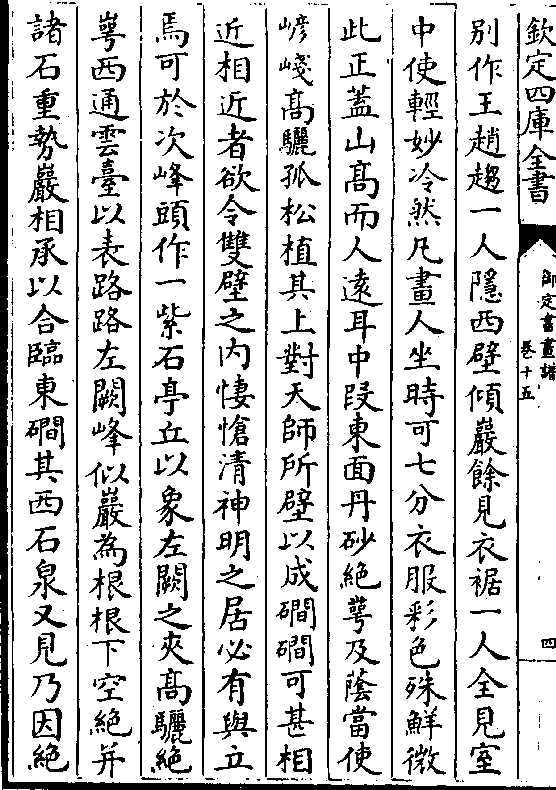 欽定四庫全書
御定書畫譜
卷十五
四
別作王趙趨一人隱西壁傾巖餘見衣裾一人全見室
中使輕妙冷然凡畫人坐時可七分衣服彩色殊鮮微
此正蓋山髙而人逺耳中段東面丹砂絶萼及蔭當使
嵃嵘髙驪孤松植其上對天師所壁以成磵磵可甚相
近相近者欲令雙壁之内悽愴清神明之居必有與立
焉可於次峰頭作一紫石亭丘以象左闕之夾髙驪絶
萼西通雲臺以表路路左闕峰似巖為根根下空絶并
諸石重勢巖相承以合臨東磵其西石泉又見乃因絶